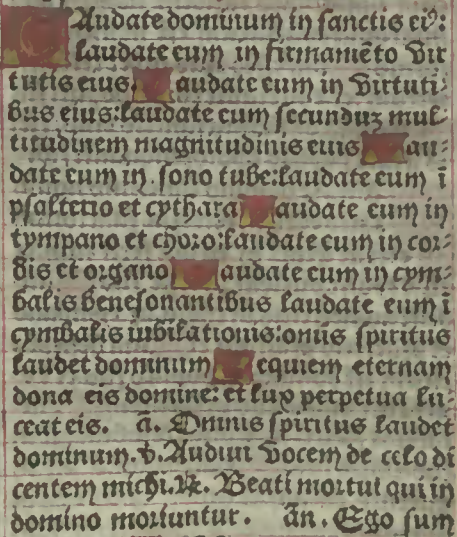 LAudate dominum in sanctis eiꝰ:
laudate eum in firmamēto vir
tutis eius. Laudate eum in virtuti⸗
bus eius: laudate eum secunduꝫ mul⸗
titudinem magnitudinis eius Lau⸗
date eum in sono tube: laudate eum ī
psalterio et cythara Laudate eum in
tympano et choro: laudate eum in cor⸗
dis et organo Laudate eum in cym⸗
balis benesonantibus laudate eum ī
cymbalis iubilationis: omīs spiritus
laudet dominum Requiem eternam
dona eis domine: et lux perpetua lu⸗
ceat eis. ā. Omnis spiritus laudet
dominum. v̄. Audiui vocem de celo di
centem michi. ℟. Beati mortui qui in
domino moriuntur. ān. Ego sum